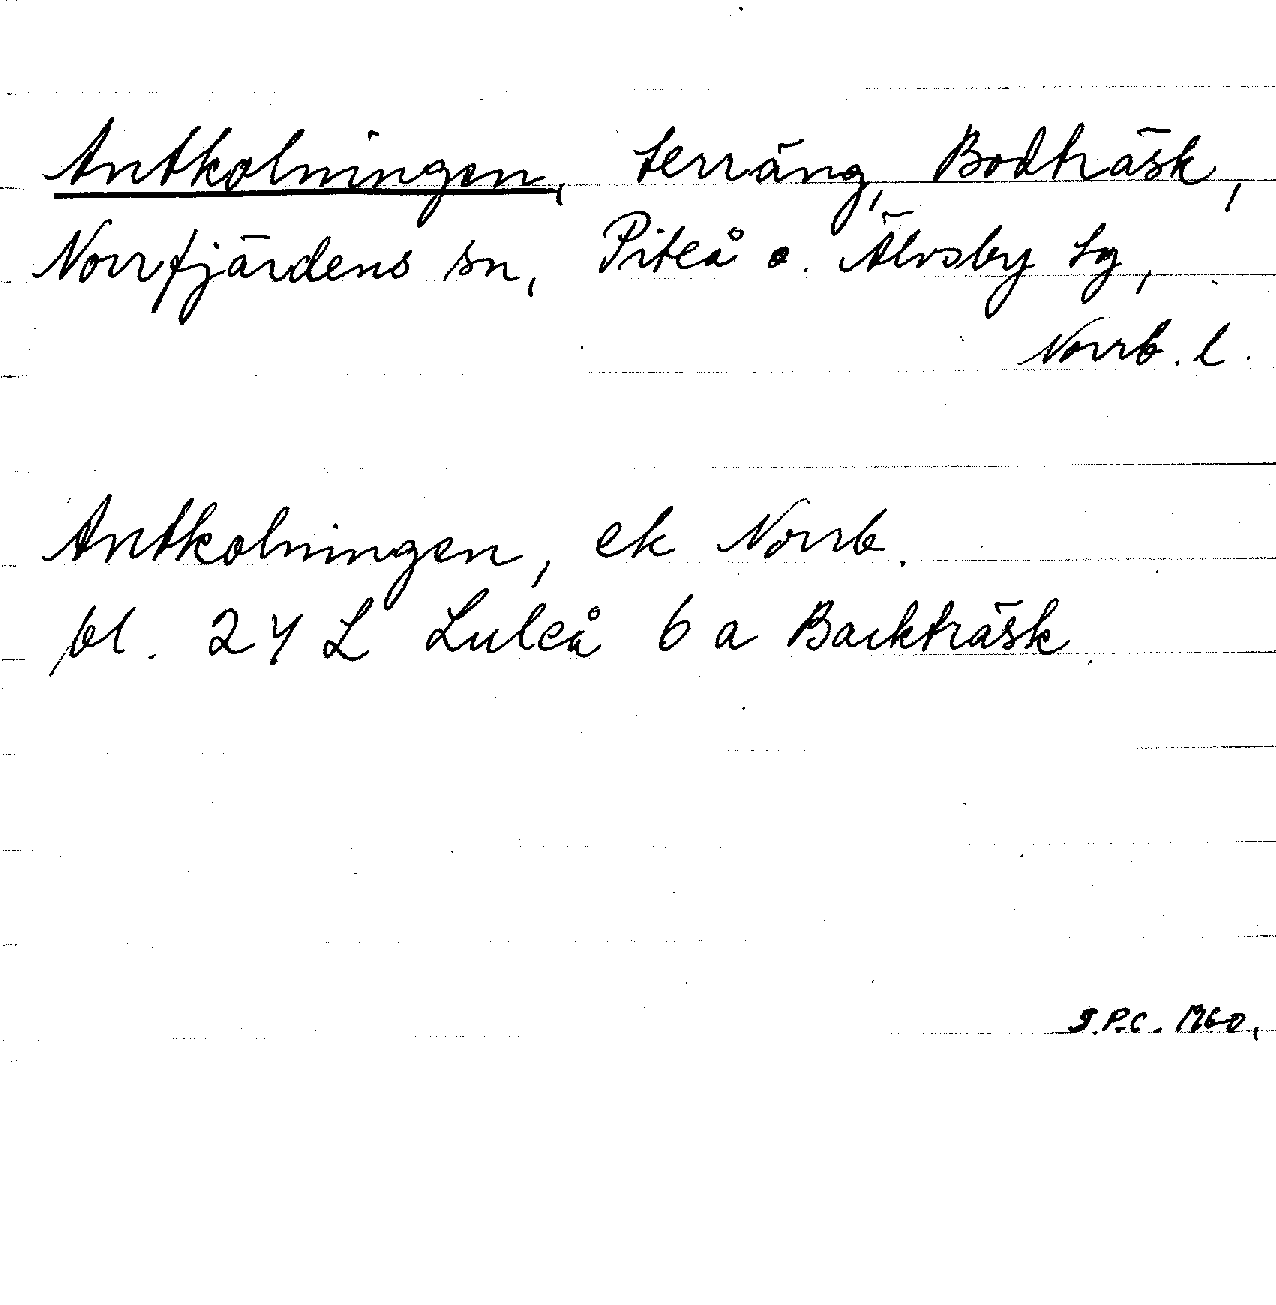 Antkolningen, terräng, Bodträsk,
Norrfjärdens sn, Piteå o. Älvsby tg,
Norrb. l.
Antkolningen, ek Norrb.
bl. 24 L Luleå 6 a Backträsk
S.P.C. 1960.